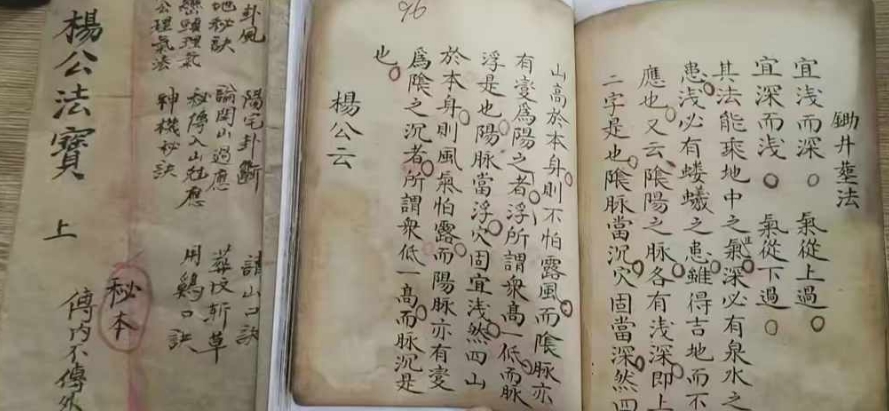 鋤井塟法
宜浅而深。氣從上過。
宜深而浅。氣從下過。
其法能乘地中之氣深必有泉水之
患浅必有蝼蟻之患雖得吉地而不
應也又云陰陽之脉各有浅深即上
二字是也陰脉當沉穴固當深然四
96
山高於本身則不怕露風而陰脉亦
有変為陽之者浮所謂衆高一低而脉
浮是也陽脉當浮穴固宜浅然四山
於本身則風氣怕露而陽脉亦有変
為陰之沉者所謂衆低一高而脉沉是
也
楊公云
卦風 陽宅卦斷 請山口訣
地秘訣 論開山過應 葬坟斬草
巒頭理氣 秘傳入山尅應 用鷄口訣
公理氣法 神機秘訣
秘本
傳内不傳外
楊公法寶 上